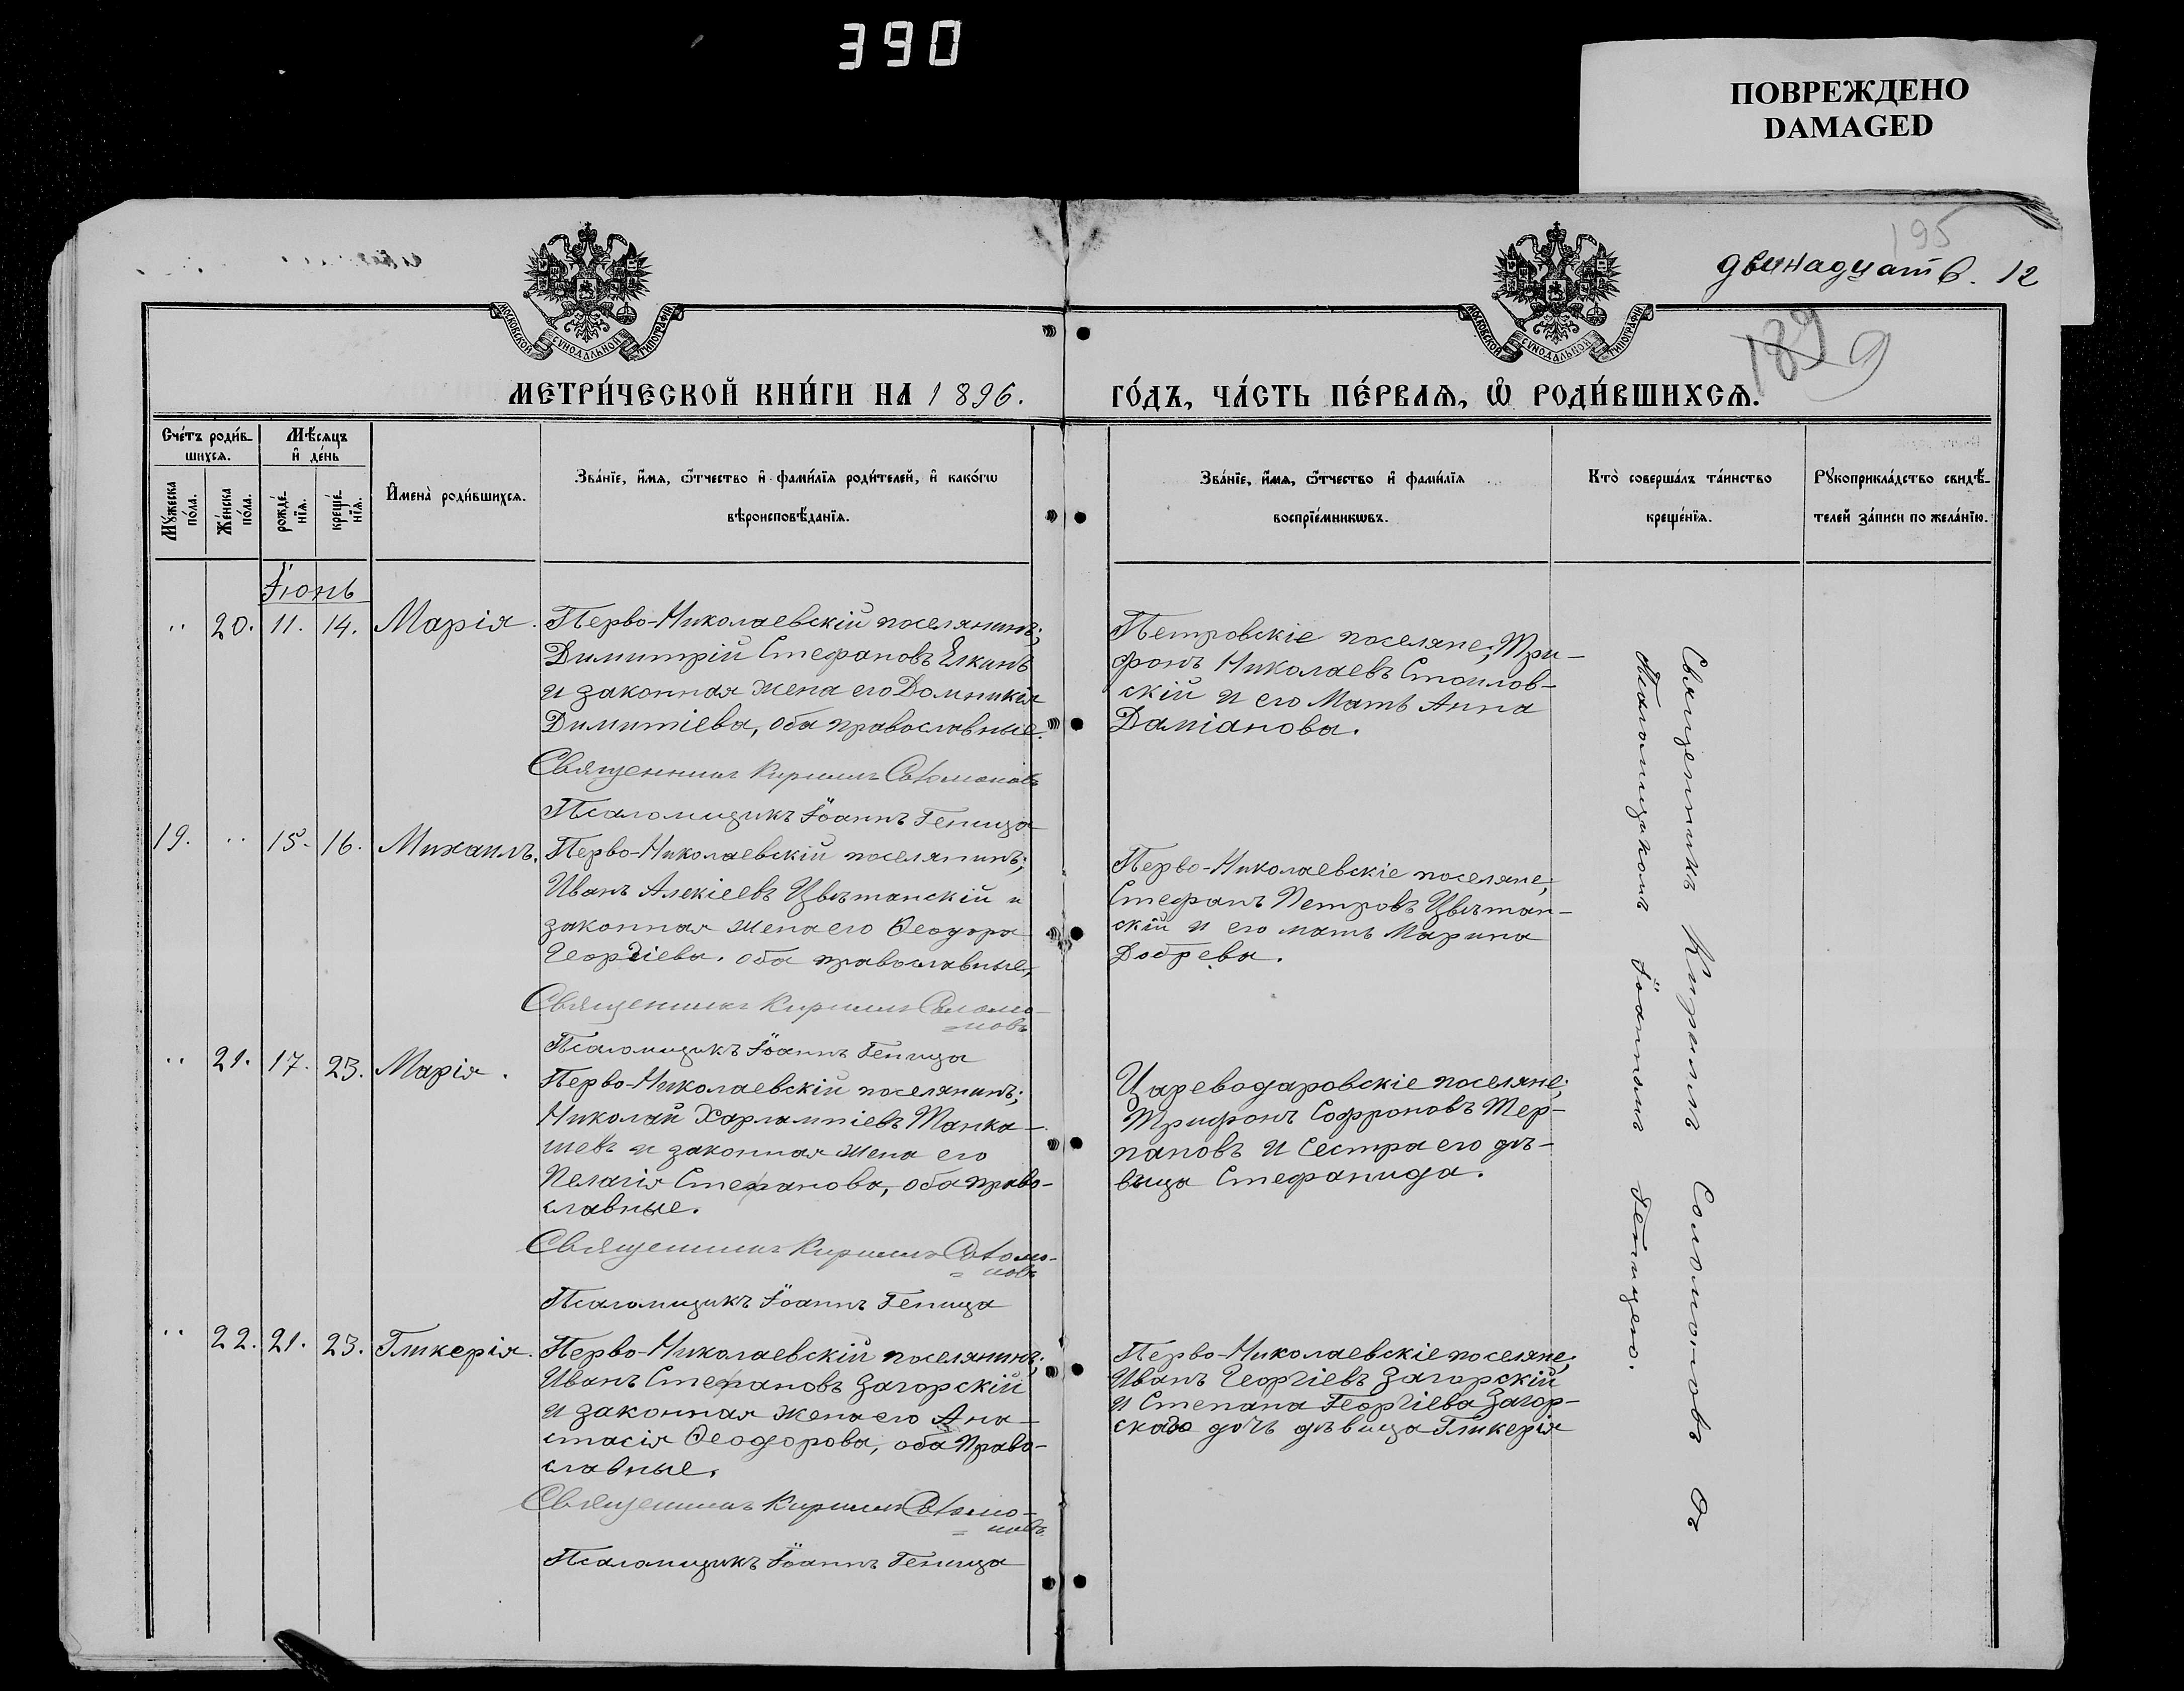 390
ПОВРЕЖДЕНО
DAMAGED
195
двинадцать. 12
189 9
МОСКОВСКОЙ СѴНОДАЛЬНОЙ ТИПОГРАФІИ
МОСКОВСКОЙ СѴНОДАЛЬНОЙ ТИПОГРАФІИ
МЕТРИ́ЧЕСКОЙ КНИ́ГИ НА 1896.
ГО́ДЪ, ЧА́СТЬ ПЕ́РВАѦ, Ѡ҆ РОДИ́ВШИХСѦ.
Сче́тъ роди́в-
шихсѧ.
Мꙋ́жеска
по́ла.
Же́нска
по́ла.
Мѣ́сѧцъ
и҆ де́нь
рожде́-
нїѧ.
креще́-
нїѧ.
И҆мена̀ роди́вшихсѧ.
Зва́нїе, и҆́мѧ, ѻ҆́тчество и҆ фами́лїѧ роди́телей, и҆ како́гѡ
вѣроисповѣ́данїѧ.
Зва́нїе, и҆́мѧ, ѻ҆́тчество и҆ фами́лїѧ
воспрїе́мникѡвъ.
Кто̀ соверша́лъ та́инство
креще́нїѧ.
Рꙋкоприкла́дство свидѣ́-
телей за́писи по жела́нїю.
Іюнь
" 20. 11. 14. Марія.
Перво-Николаевскій поселянинъ;
Димитрій Стефановъ Елкинъ
и законная жена его Домникія
Димитіева, оба православные.
Священникъ Кирилъ Соломоновъ
Псаломщикъ Іоаннъ Геница
Петровскіе поселяне; Три-
фонъ Николаевъ Стоилов-
скій и его Мать Анна
Даміанова.
19. " 15. 16. Михаилъ.
Перво-Николаевскій поселянинъ;
Иванъ Алекіеевъ Цвѣтанскій и
законная жена его Ѳеодора
Георгіева. оба православные,
Священникъ Кирилъ Соломо-
=новъ
Псаломщикъ Іоаннъ Геница
Перво-Николаевскіе поселяне;
Стефанъ Петровъ Цвѣтан-
скій и его мать Марина
Добрева.
" 21. 17. 23. Марія.
Перво-Николаевскій поселянинъ;
Николай Харлампіевъ Танка-
шевъ и законная жена его
Пелагія Стефанова, оба право-
славные.
Священникъ Кирилъ Соломо-
=новъ
Псаломщикъ Іоаннъ Геница
Цареводаровскіе поселяне;
Трифонъ Софроновъ Тер-
пановъ и Сестра его дѣ-
вица Стефанида.
" 22. 21. 23. Гликерія.
Перво-Николаевскій поселянинъ;
Иванъ Стефановъ Загорскій
и законная жена его Ана-
стасія Ѳеодорова, оба Право-
славные.
Священникъ Кирилъ Соломо-
=новъ
Псаломщикъ Іоаннъ Геница
Перво-Николаевскіе поселяне;
Иванъ Георгіевъ Загорскій
и Степана Георгіева Загор-
скаго дочь дѣвица Гликерія
Священникъ Кирилъ Соломоновъ съ
Псаломщикомъ Іоанномъ Геницею.